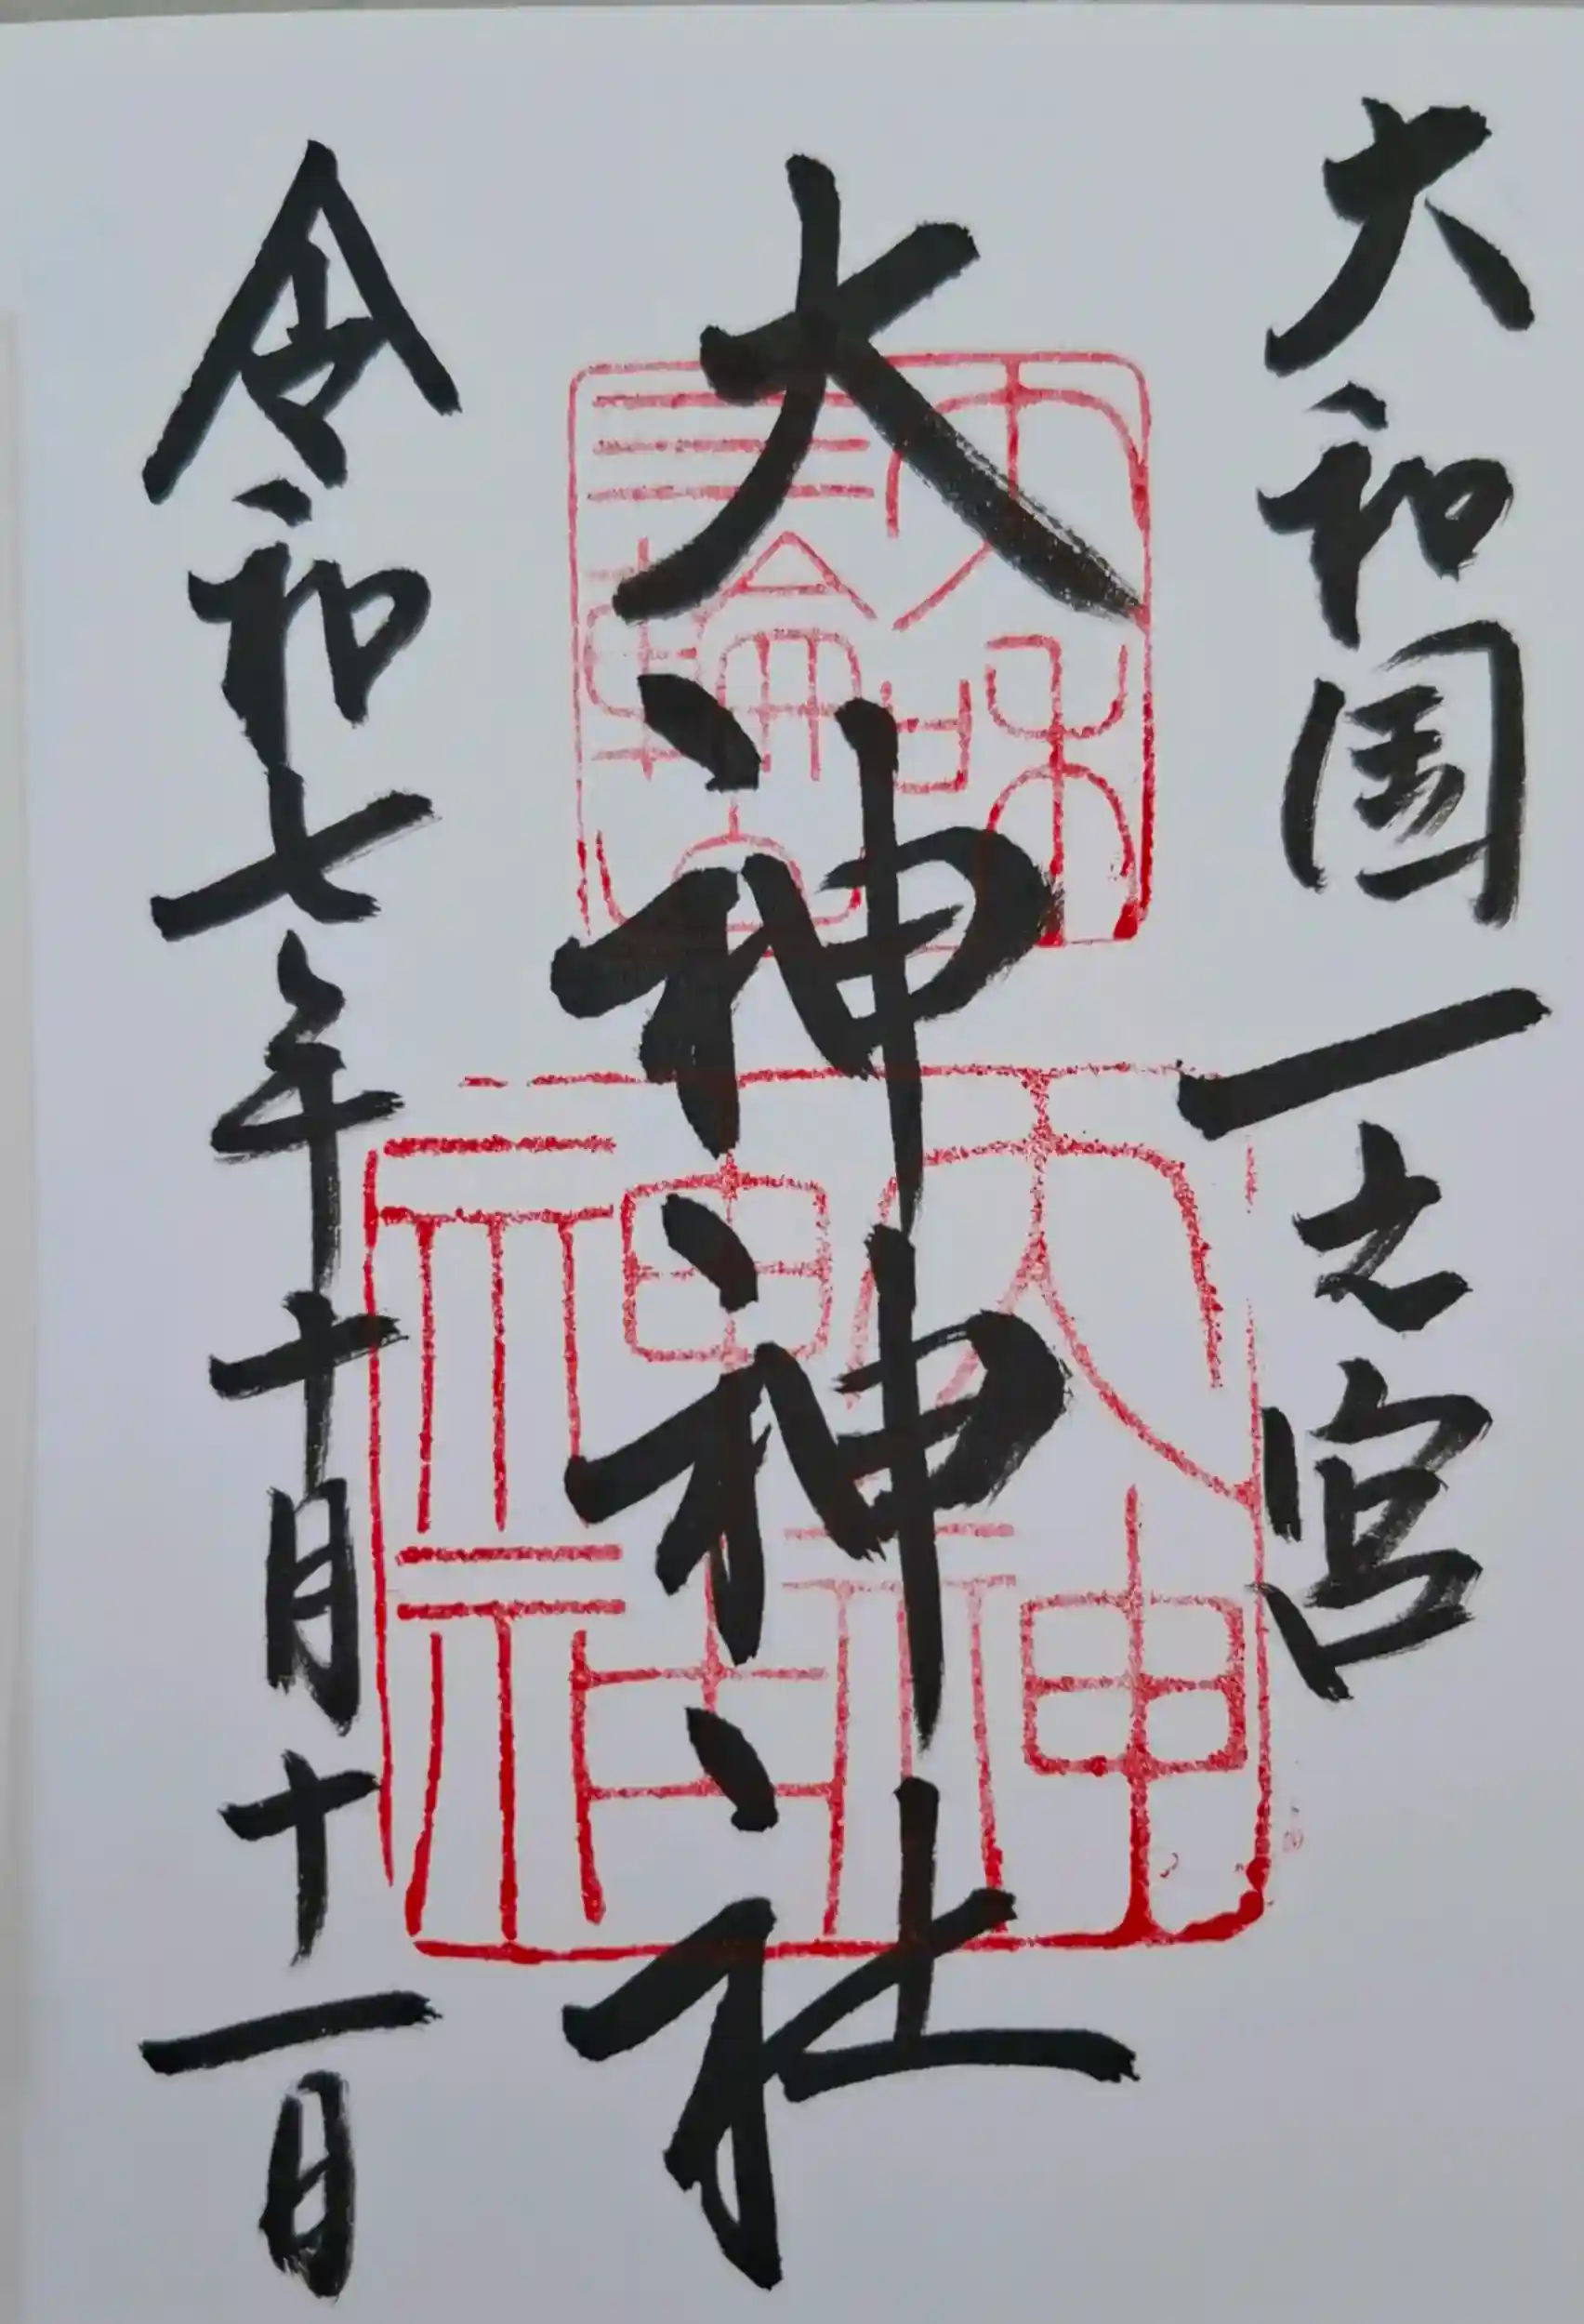 大和国一之宮
大神神社
令和七年十月十一日
大和三輪山
大神神社